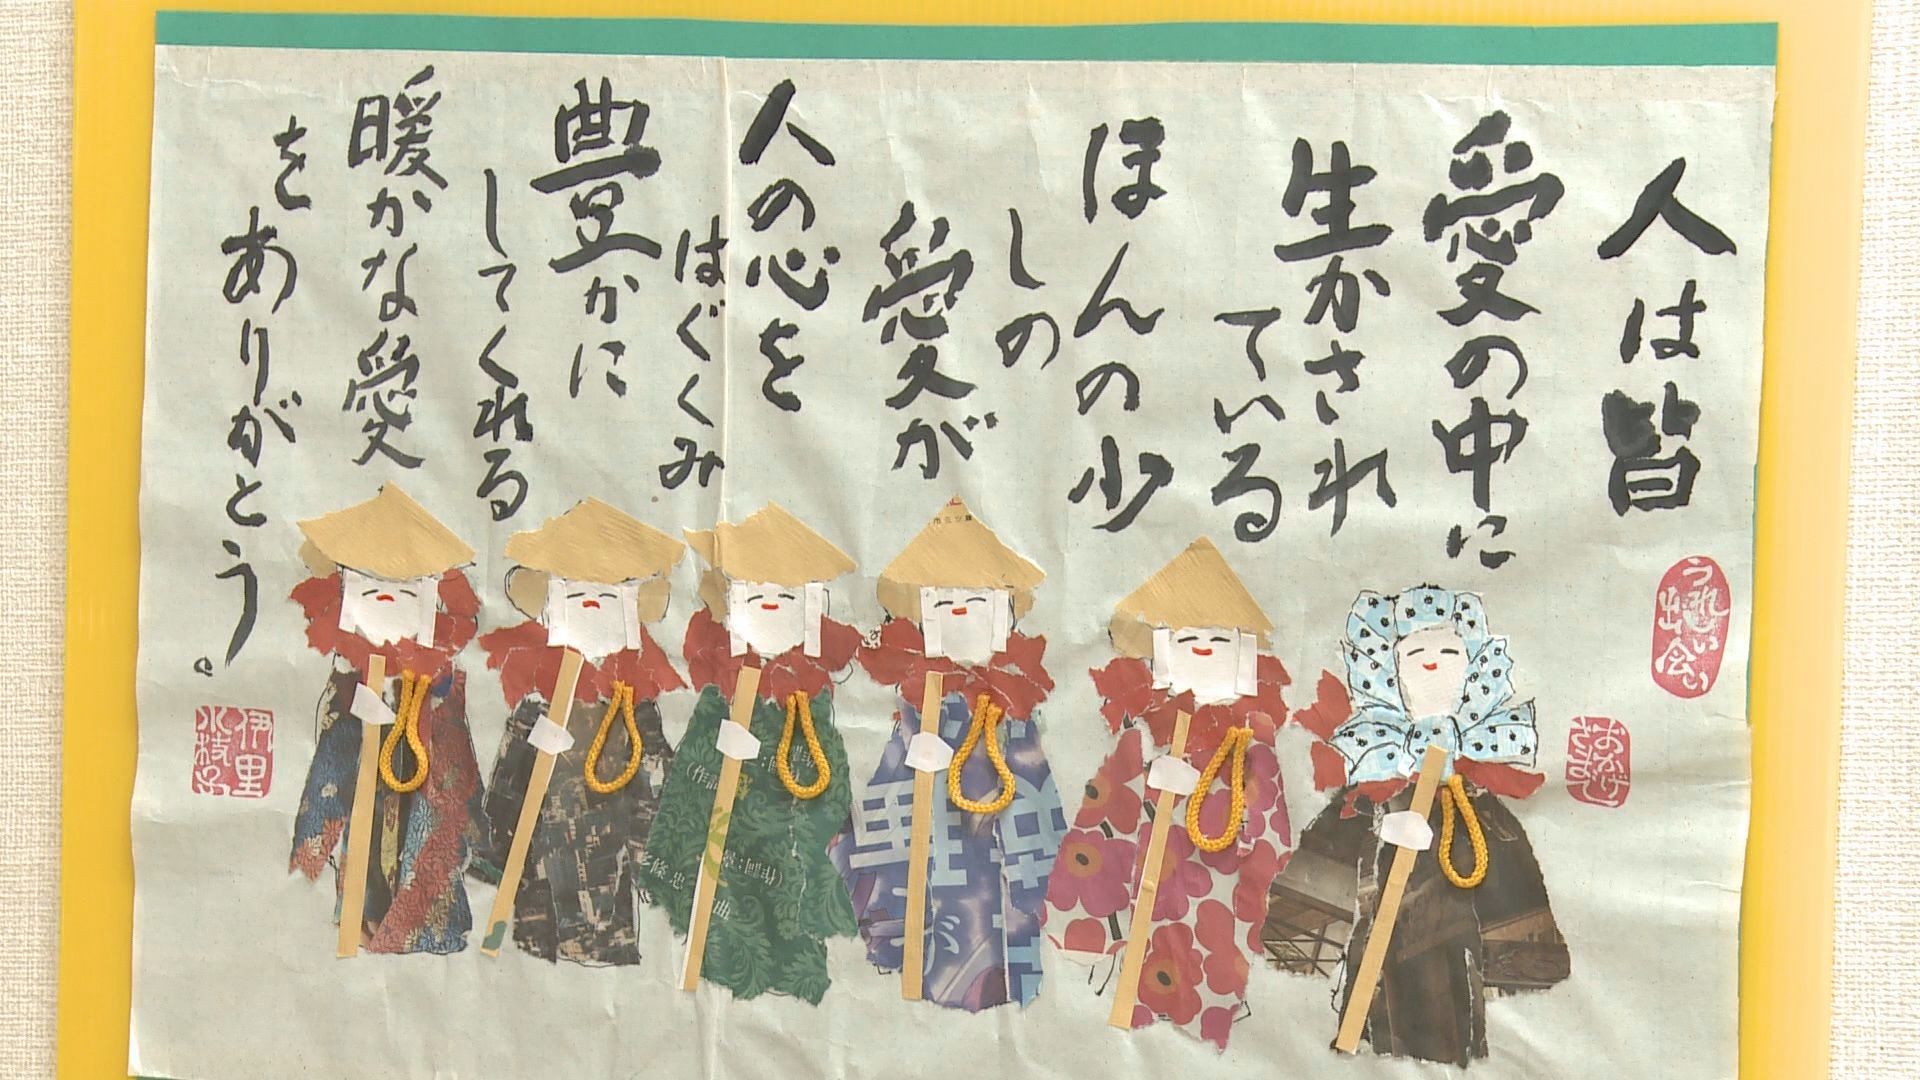 人は皆
愛の中に
生かされ
ている
ほんの少
しの
愛が
人の心を
はぐくみ
豊かに
してくれる
暖かな愛
を
ありがとう。
うれしい
出会い
おかげ
さま
伊里